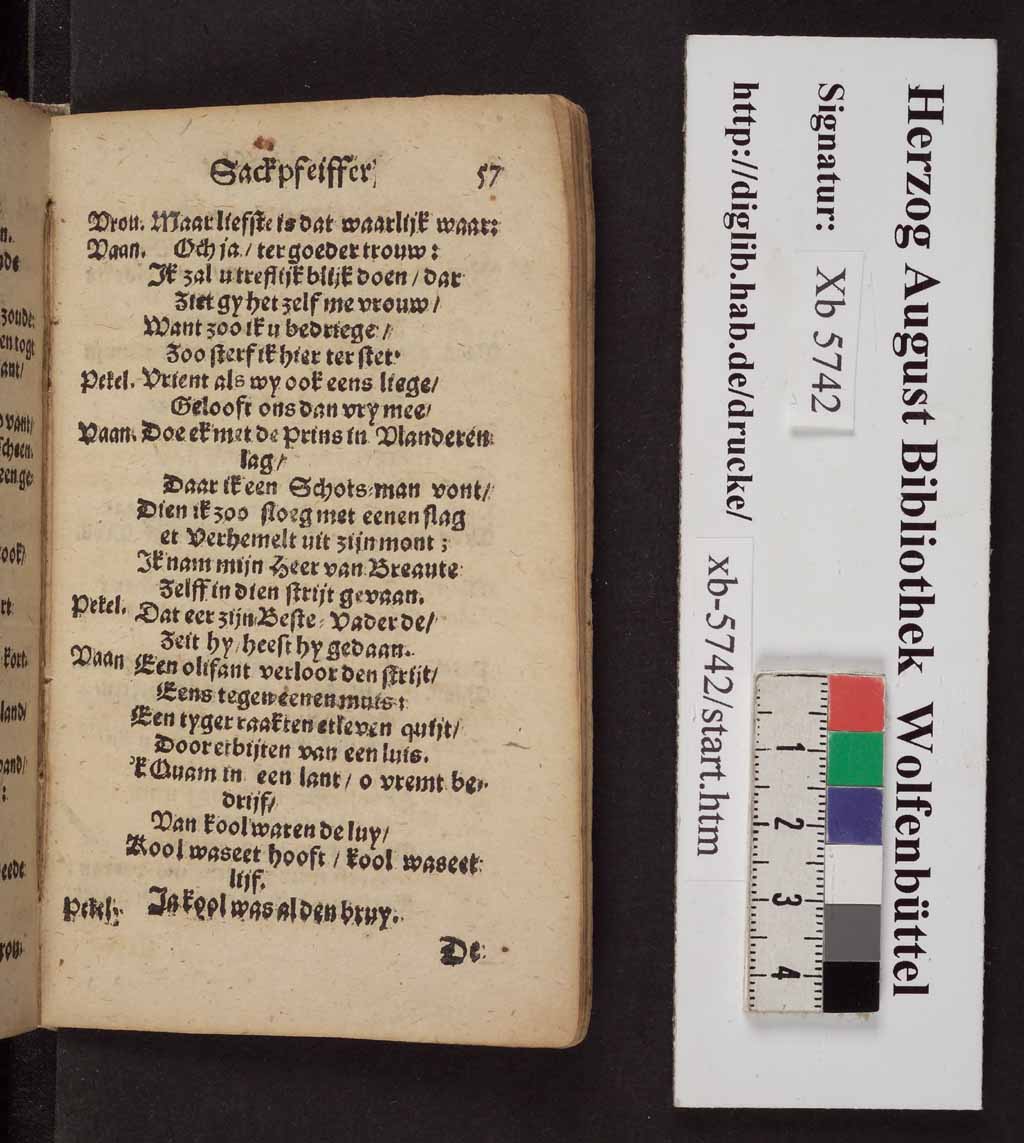 Sackpfeiffer, 57
Vrou. Maar liefste is dat waarlijk waar:
Vaan. Och ja / ter goeder trouw:
Ik zal u treflijk blijk doen / dar
Ziet gy het zelf me vrouw /
Want zoo ik u bedriege /
Zoo sterf ik hier ter stet
Pekel. Vrient als wy ook eens liege /
Gelooft ons dan vry mee /
Vaan. Doe ek met de Prins in Vlanderen
lag /
Daar ik een Schots-man vont /
Dien ik zoo sloeg met eenen slag
et Verhemelt uit zijn mont ;
Ik nam mijn Heer van Breaute
Zelff in dien strijt gevaan.
Pekel. Dat eer zijn Beste-Vader de /
Zeit hy / heest hy gedaan.
Vaan Een olifant verloor den strijt /
Eens tegen eenen muis :
Een tyger raakten etleven quijt /
Door etbijten van een luis.
'k Quam in een lant / o vremt be-
drijf /
Van kool waren de luy /
Kool waseet hooft / kool waseet
lijf.
Pekel. Ja kool was al den bruy.
De
n.
de
zoude
en togt
ant /
vant /
scheen.
een ge-
ook /
rt
kort.
land /
and /
:
eede
rou.
Herzog August Bibliothek Wolfenbüttel
Signatur: Xb 5742
http://diglib.hab.de/drucke/
xb-5742/start.htm
1
2
3
4